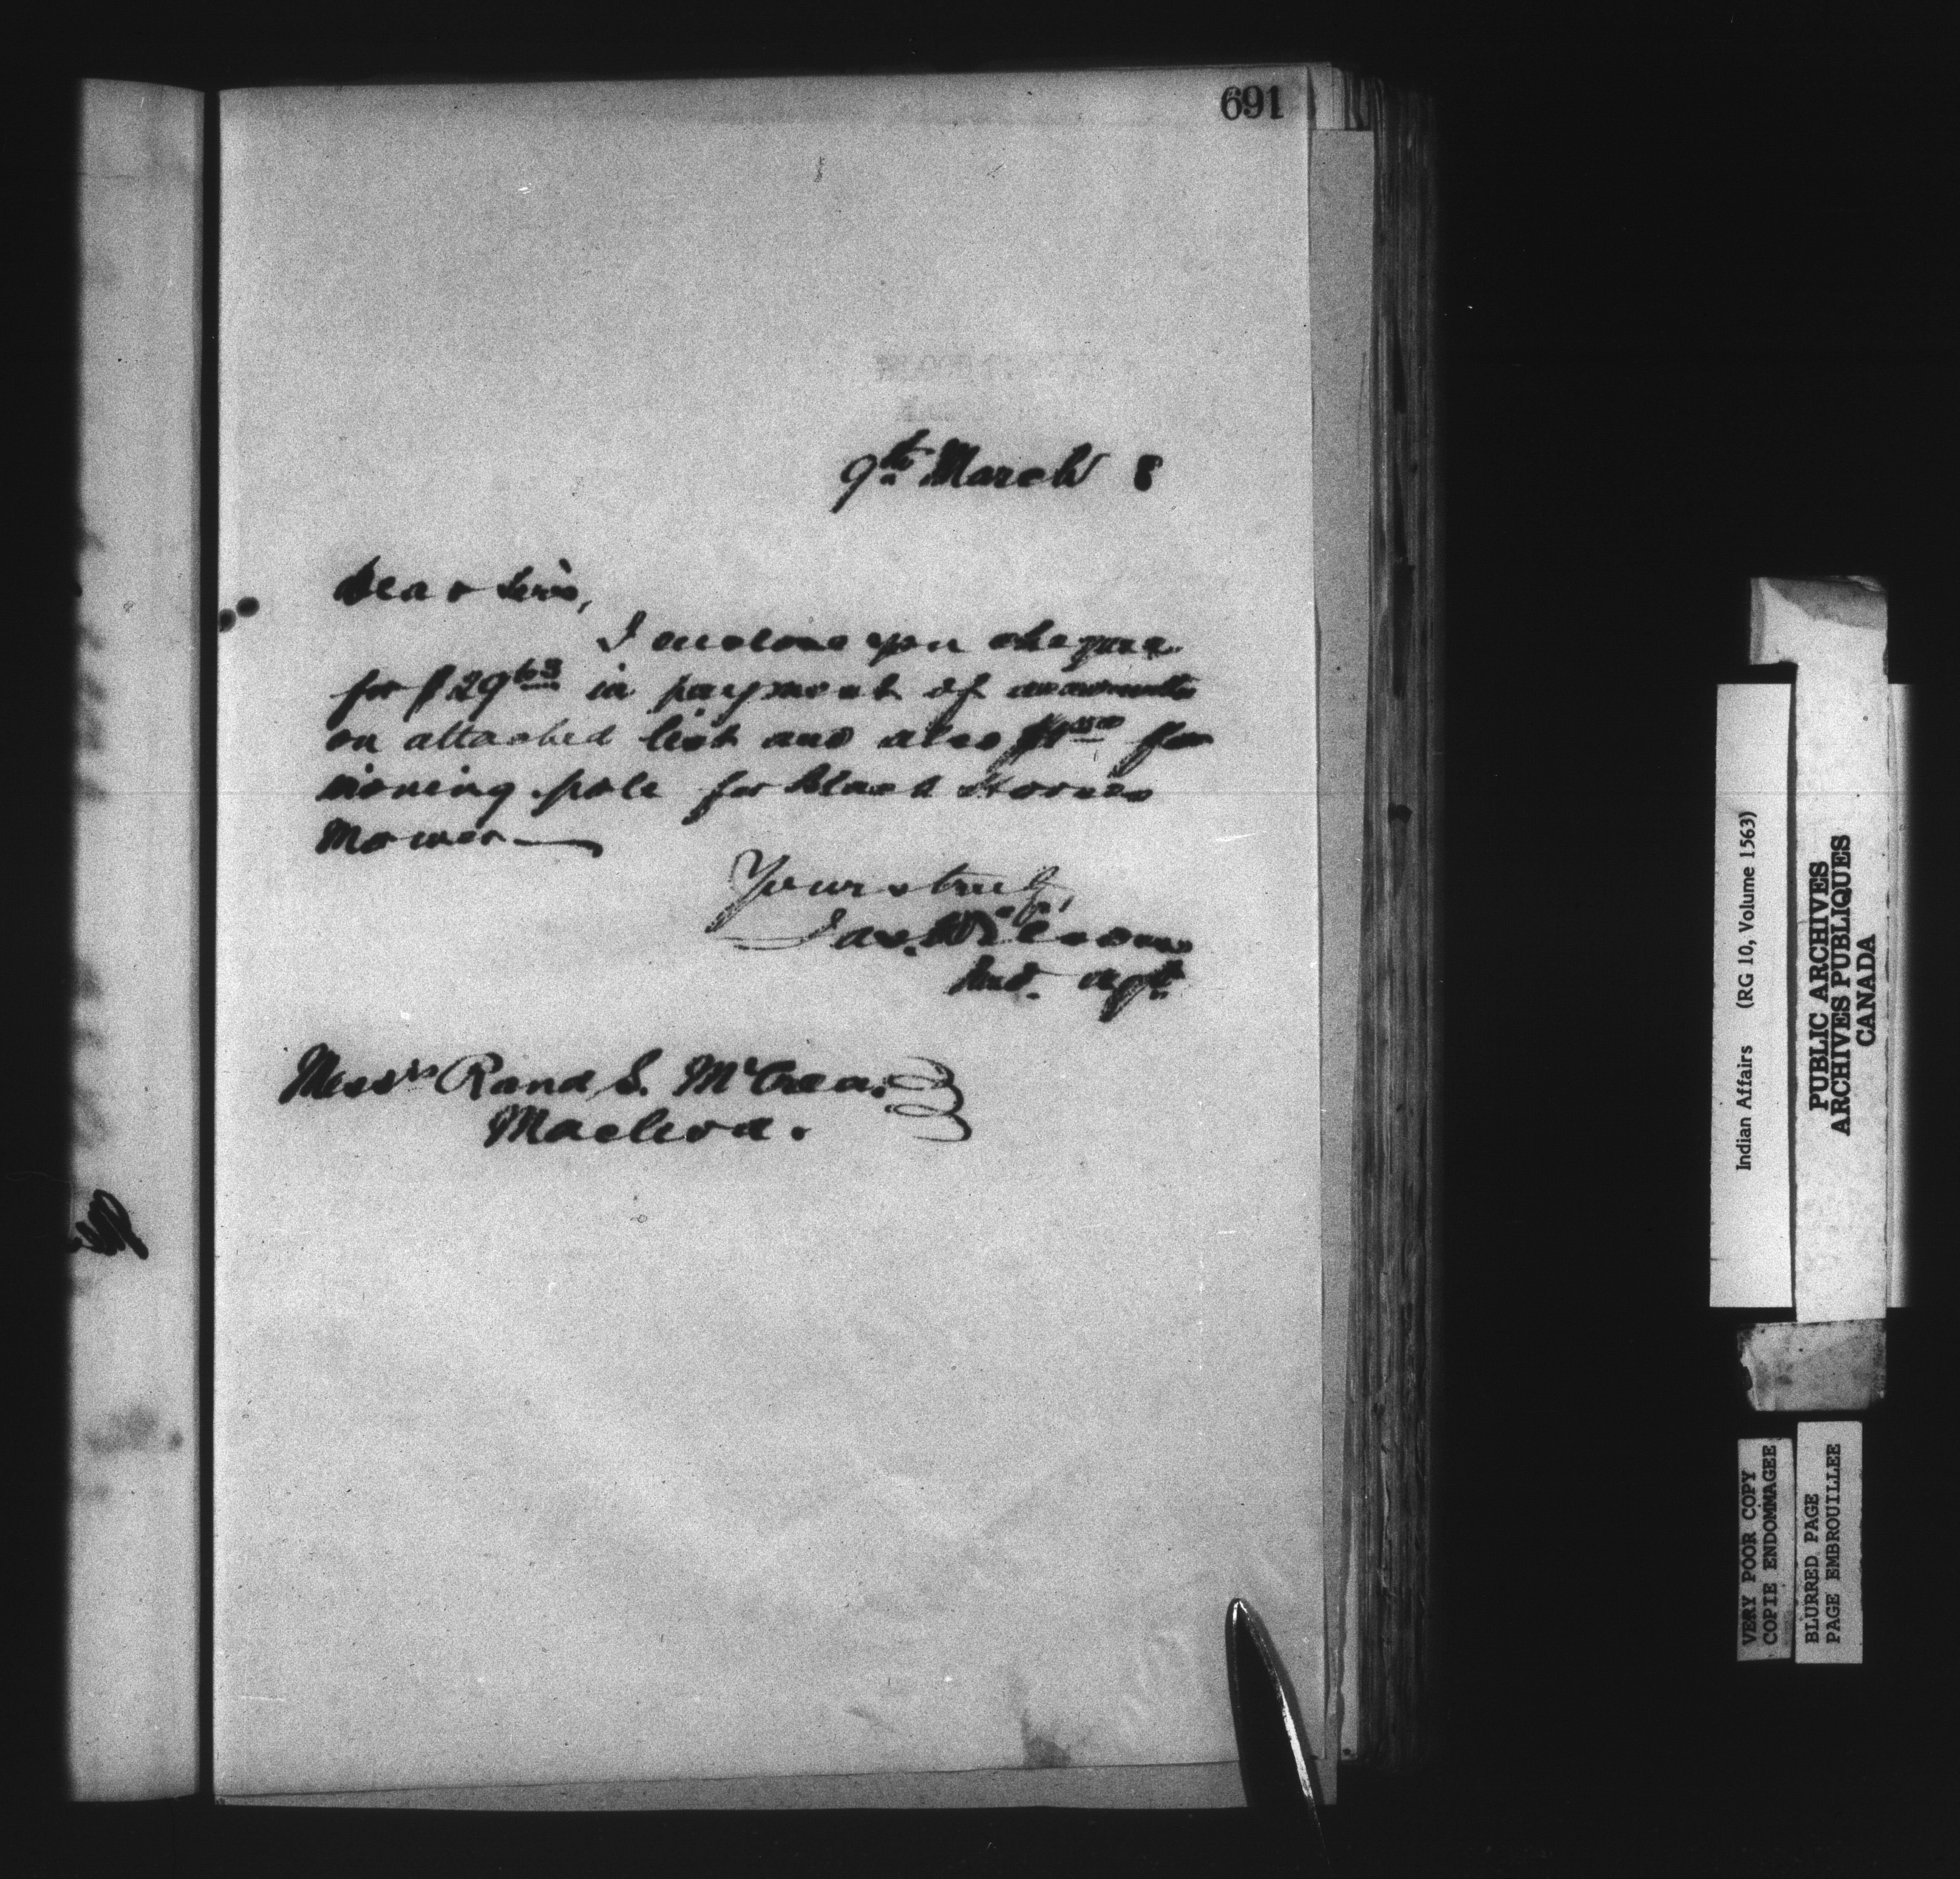 691
9th March 8
Dear Sirs,
I enclose you cheque
for $29 63 in payment of accounts
on attached list and also for
ironing pole for Black Horses
Mower —
Yours truly,
Jas. Wilson
Ind. Agt.
Messrs R and S. McCrea.
Macleod.
Indian Affairs (RG 10, Volume 1563)
PUBLIC ARCHIVES
ARCHIVES PUBLIQUES
CANADA
VERY POOR COPY
COPIE ENDOMMAGEE
BLURRED PAGE
PAGE EMBROUILLEE